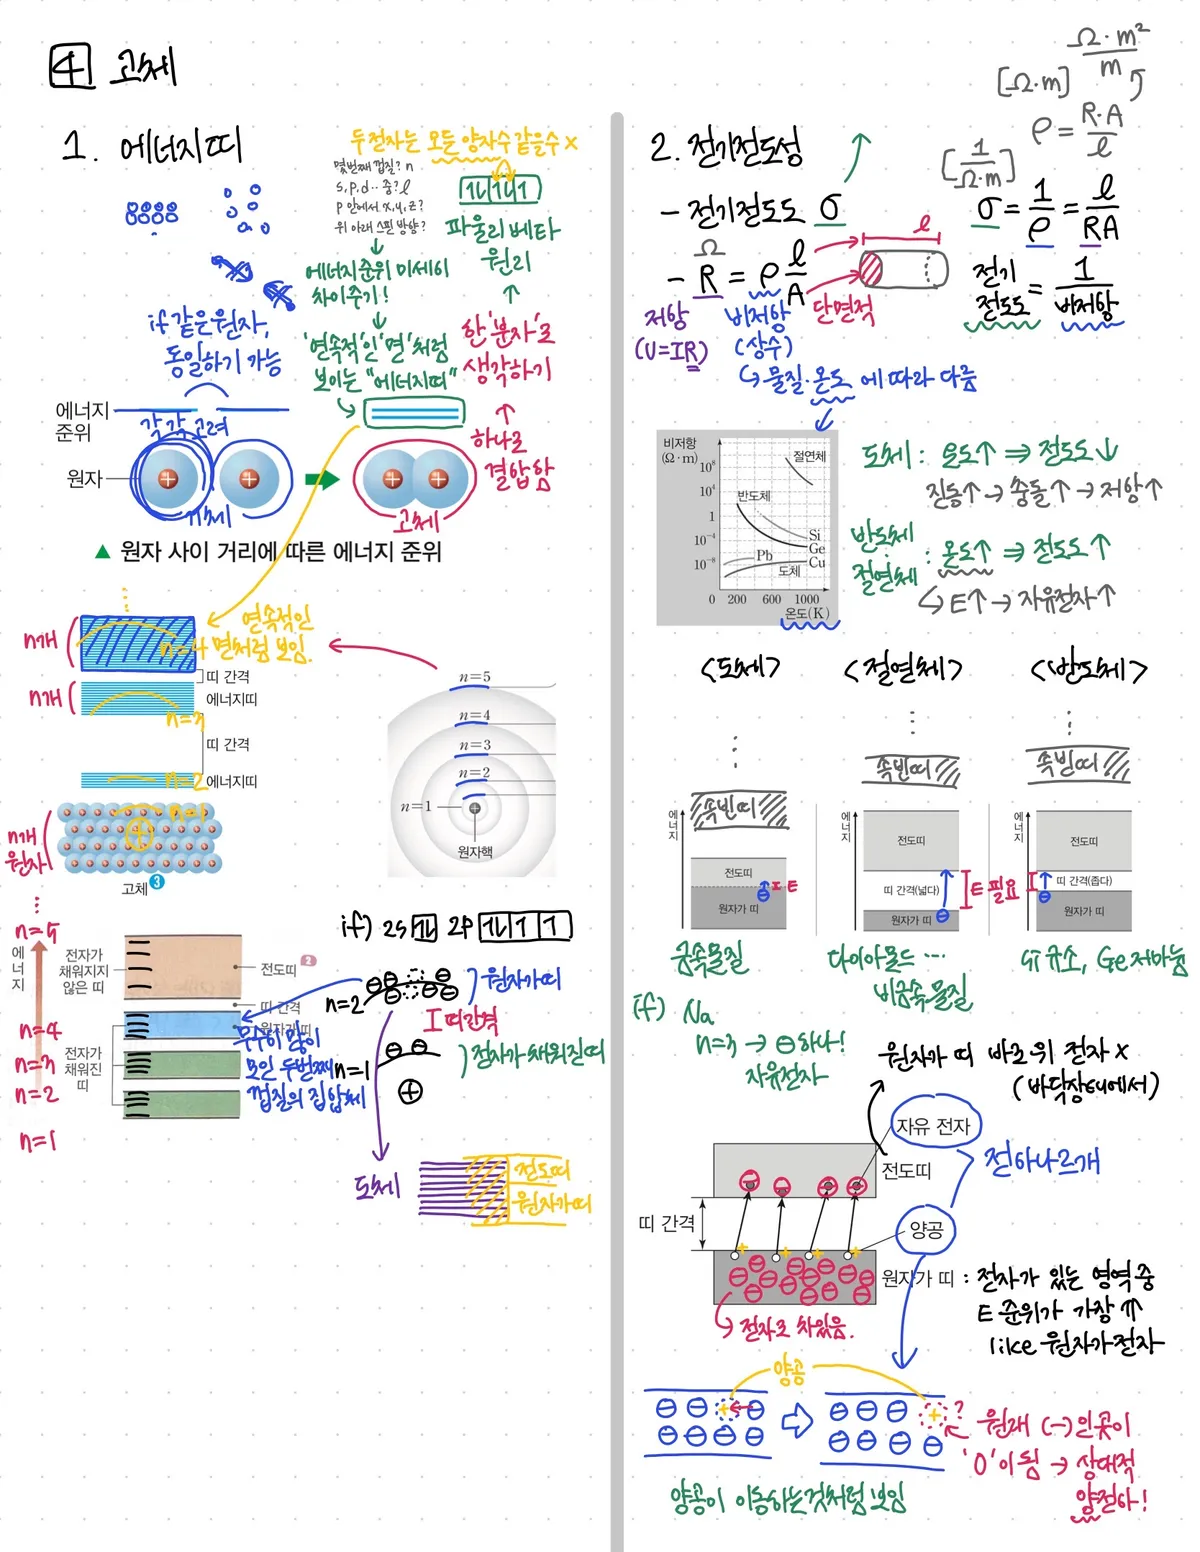 4 고체
1. 에너지띠
두 전자는 모든 양자수 같을수 x
몇번째 껍질? n
s, p, d ·· 중? l
p 안에서 x, y, z?
위 아래 스핀 방향?
파울리 베타
원리
에너지준위 미세히
차이주기!
if 같은 원자,
동일하기 가능
'연속적'인 '면'처럼
보이는 "에너지띠"
한 '분자'로
생각하기
에너지
준위
각각 고려
하나로
결합함
원자
기체
고체
▲ 원자 사이 거리에 따른 에너지 준위
연속적인
면처럼 보임.
n개
n=4
띠 간격
n개
에너지띠
n=3
띠 간격
n=2
에너지띠
n=1
n개
원자
고체 3
n=5
n=4
n=3
n=2
n=1
원자핵
n=5
에너지
전자가
채워지지
않은 띠
전도띠 2
띠 간격
원자가 띠
n=4
n=3
n=2
n=1
전자가
채워진
띠
무수히 많이
모인 두번째
껍질의 집합체
if) 2s 2p
n=2
원자가띠
띠간격
n=1
전자가 채워진띠
도체
전도띠
원자가띠
2. 전기전도성
- 전기전도도 σ
- R = ρ l/A
Ω
l
저항
(V=IR)
비저항
(상수)
단면적
↳ 물질·온도 에 따라 다름
[Ω·m] Ω·m²/m
ρ = R·A/l
[1/Ω·m]
σ = 1/ρ = l/RA
전기
전도도 = 1/비저항
비저항
(Ω·m)
10⁸
10⁴
1
10⁻⁴
10⁻⁸
0 200 600 1000
온도(K)
절연체
반도체
Si
Ge
Pb
Cu
도체
도체 : 온도↑ ⇒ 전도도↓
진동↑ → 충돌↑ → 저항↑
반도체
절연체 : 온도↑ ⇒ 전도도↑
↳ E↑ → 자유전자↑
<도체> <절연체> <반도체>
속빈띠
속빈띠
속빈띠
에너지
전도띠
E
원자가 띠
에너지
전도띠
띠 간격(넓다)
원자가 띠
E 필요
에너지
전도띠
띠 간격(좁다)
원자가 띠
금속물질
다이아몬드 ···
비금속물질
Si 규소, Ge 저마늄
if) Na
n=3 → ⊖하나!
자유전자
원자가 띠 바로 위 전자 x
(바닥상태에서)
자유 전자
전도띠
전하나르개
띠 간격
양공
원자가 띠 : 전자가 있는 영역 중
E 준위가 가장 ↑
like 원자가전자
↳ 전자로 차있음.
양공
?
원래 (-)인곳이
'0'이됨 → 상대적
양전하!
양공이 이동하는것처럼 보임